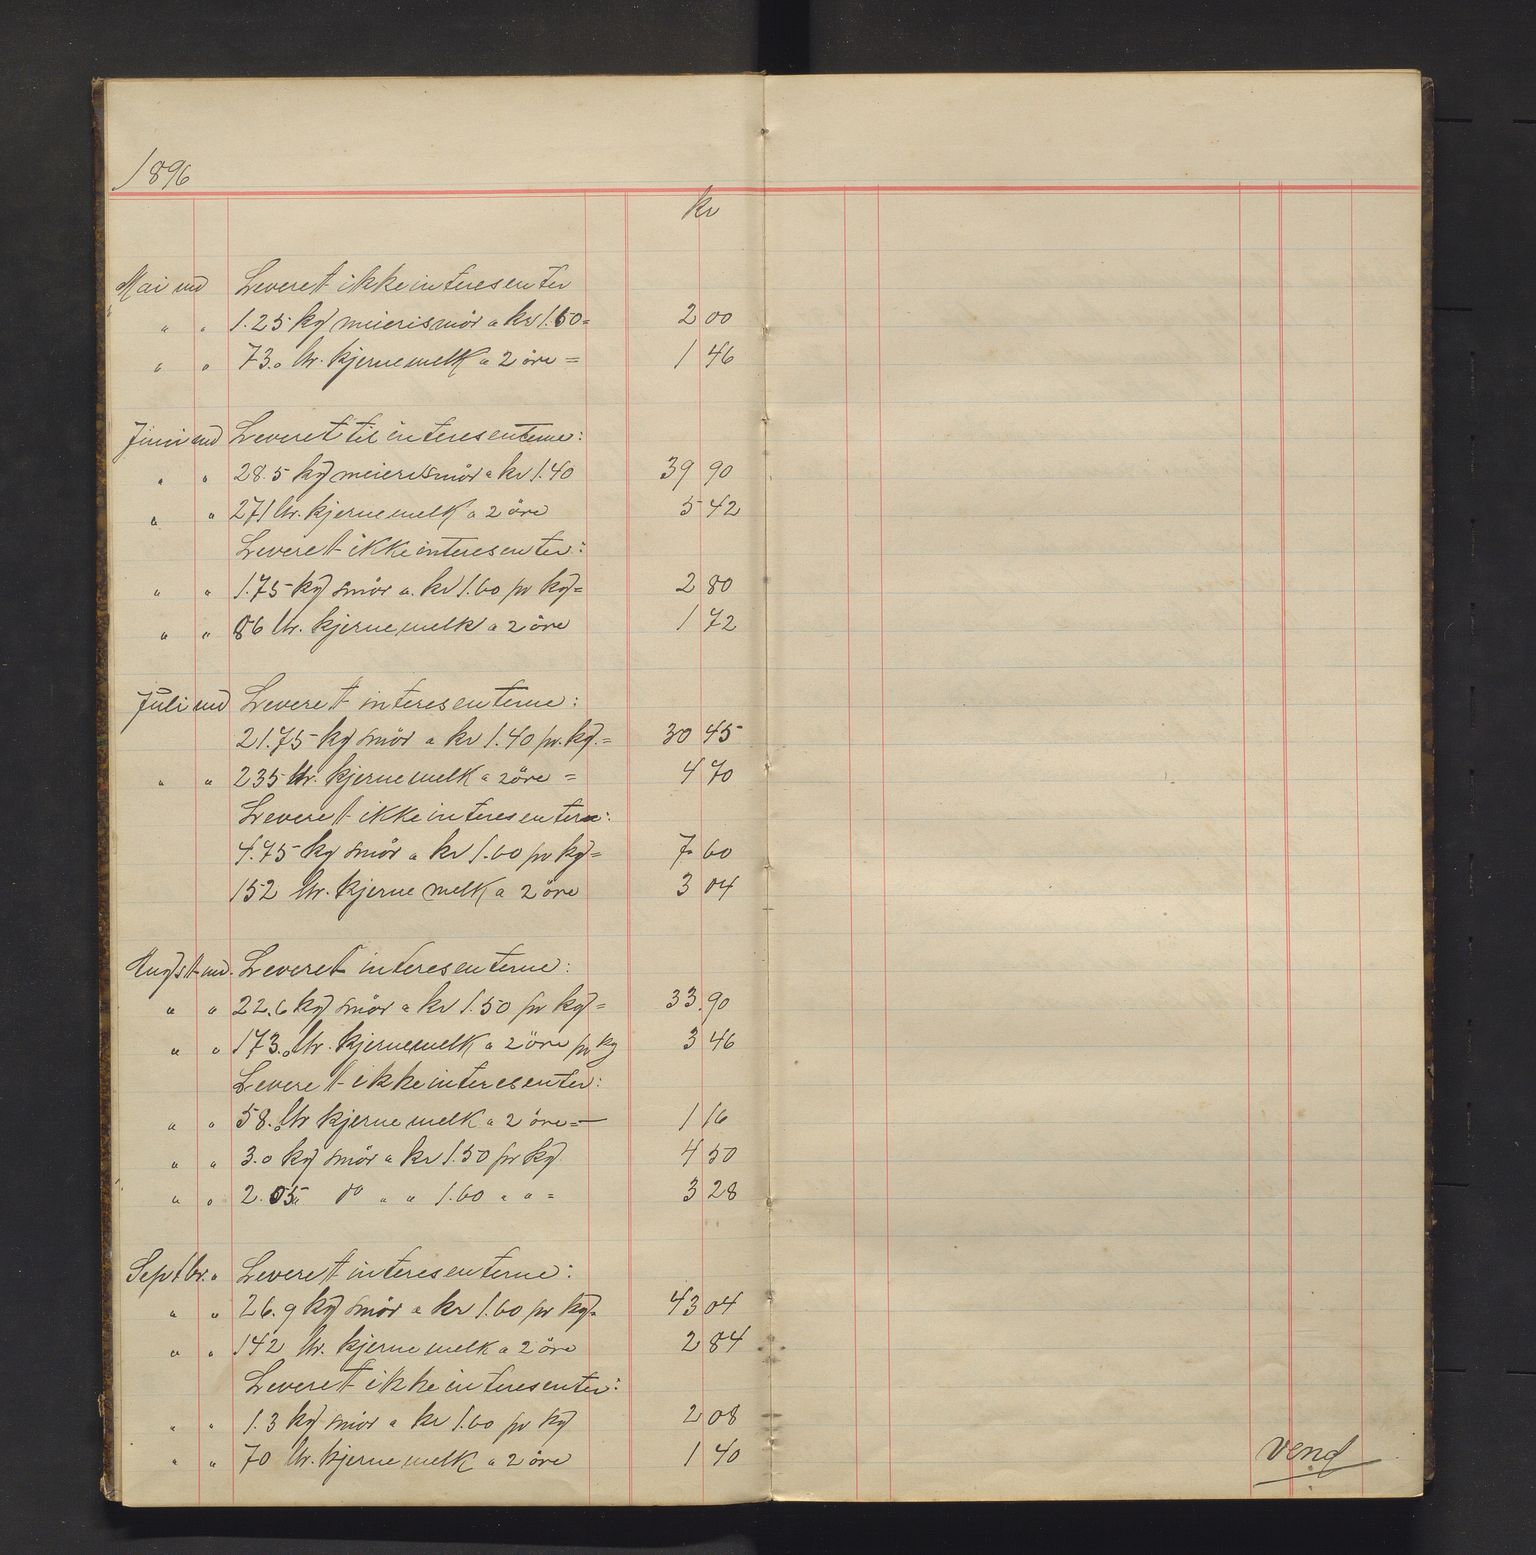 1896
kr
Mai md Leveret ikkeinteresenter
" " 1.25 kg meierismör a kr 1.60 = 2 00
" " 73.0 ltr. kjernemelk a 2 öre = 1 46
Juni md Leveret til interesenterne:
" " 28.5 kg meierismör a kr 1.40 39 90
" " 271 ltr. kjernemelk a 2 öre 5 42
Leveret ikkeinteresenter:
" " 1.75 kg smör a. kr 1.60 pr kg = 2 80
" " 86 ltr. kjernemelk a 2 öre 1 72
Juli md Leveret interesenterne:
21.75 kg smör a kr 1.40 pr. kg. = 30 45
" " 235 ltr. kjernemelk a 2 öre = 4 70
Leveret ikkeinteresenter:
4.75 kg smör a kr 1.60 pr kg = 7 60
152 ltr. kjernemelk a 2 öre 3 04
Augst md. Leveret interesenterne:
" " 22.6 kg smör a kr 1.50 pr kg = 33.90
" " 173.0 ltr. kjernemelk a 2 öre pr kg 3 46
Leveret ikkeinteresenter:
" " 58.0 ltr kjernemelk a 2 öre = 1 16
" " 3.0 kg smör a kr 1.50 pr kg 4 50
" " 2.05 do " " 1.60 " " = 3 28
Septbr. " Leveret interesenterne:
" " 26.9 kg smör a kr 1.60 pr kg = 43 04
" " 142 ltr. kjernemelk a 2 öre 2 84
Leveret ikkeinteresenter:
" " 1.3 kg smör a kr 1.60 pr kg 2 08
" " 70 ltr. kjernemelk a 2 öre 1 40
vend